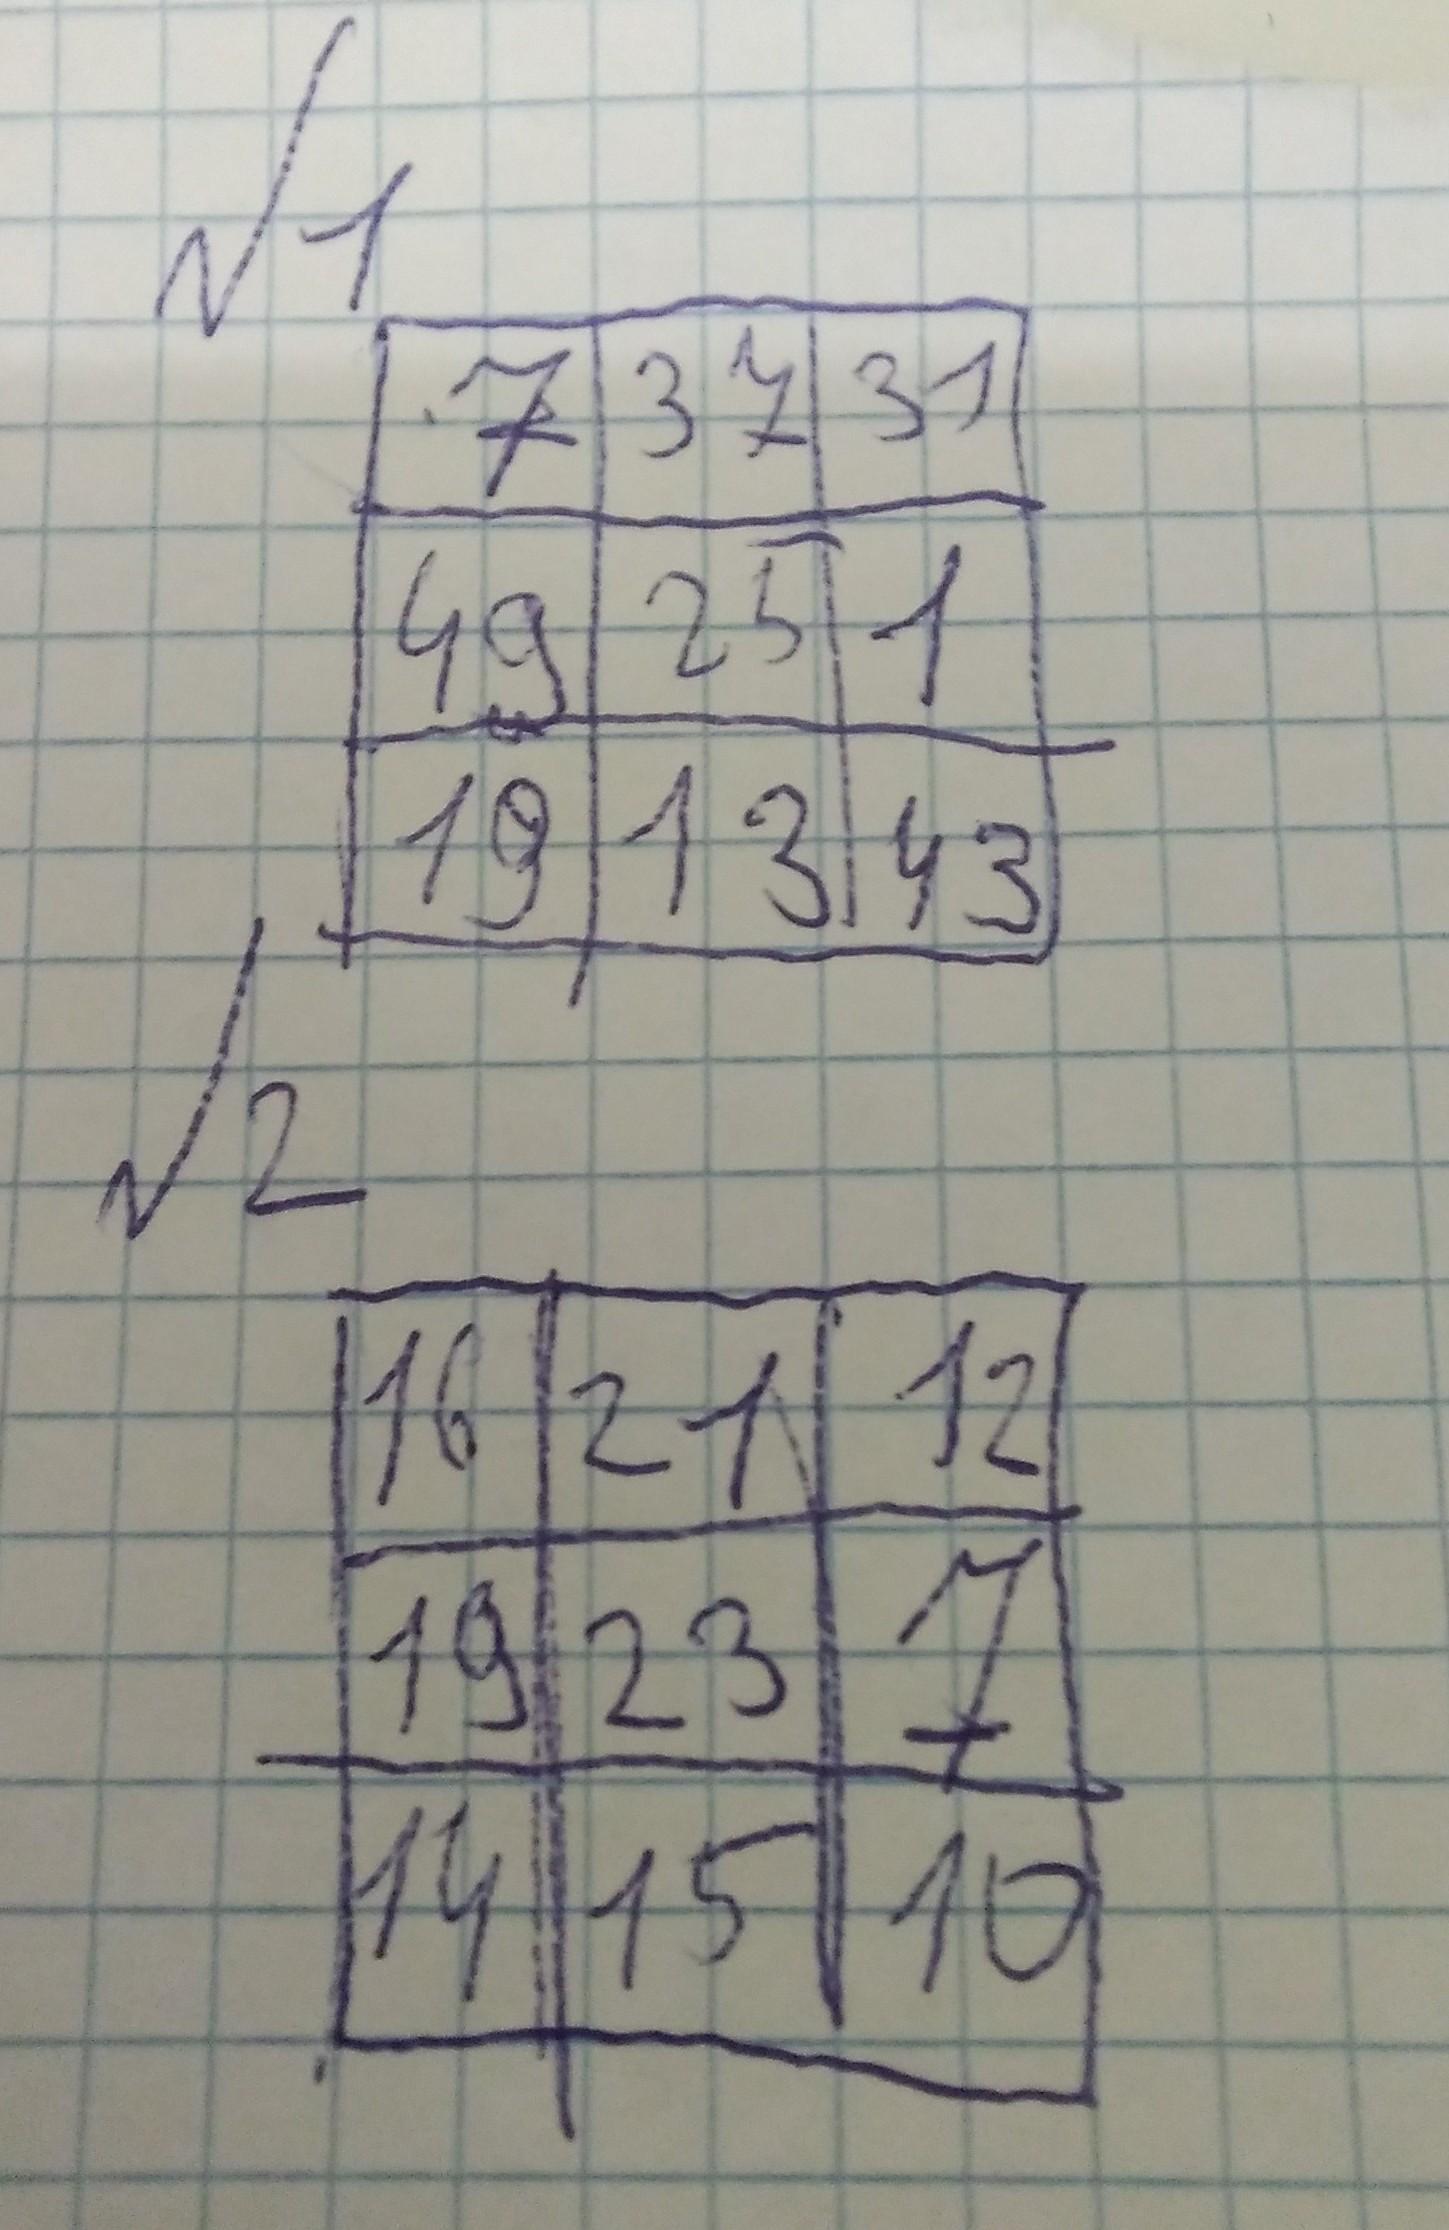 √1
7 37 31
49 25 1
19 13 43
√2
16 21 12
19 23 7
14 15 10